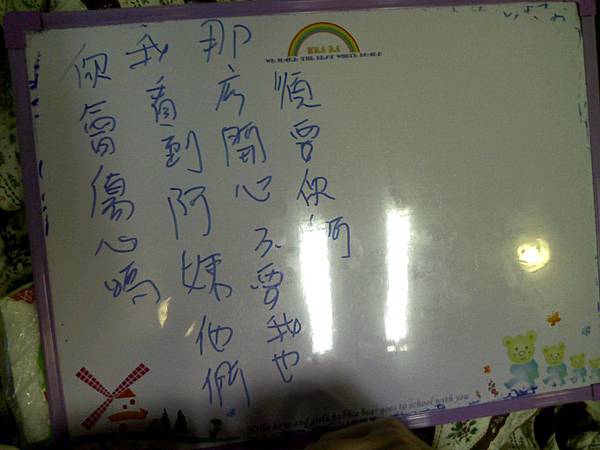 WE MAKE THE BEST WHITE BOARD
你會傷心嗎
我看到阿姨他們
那広開心不要我也
須要你啊
Hello boys and girls bubble bear goes to school with you